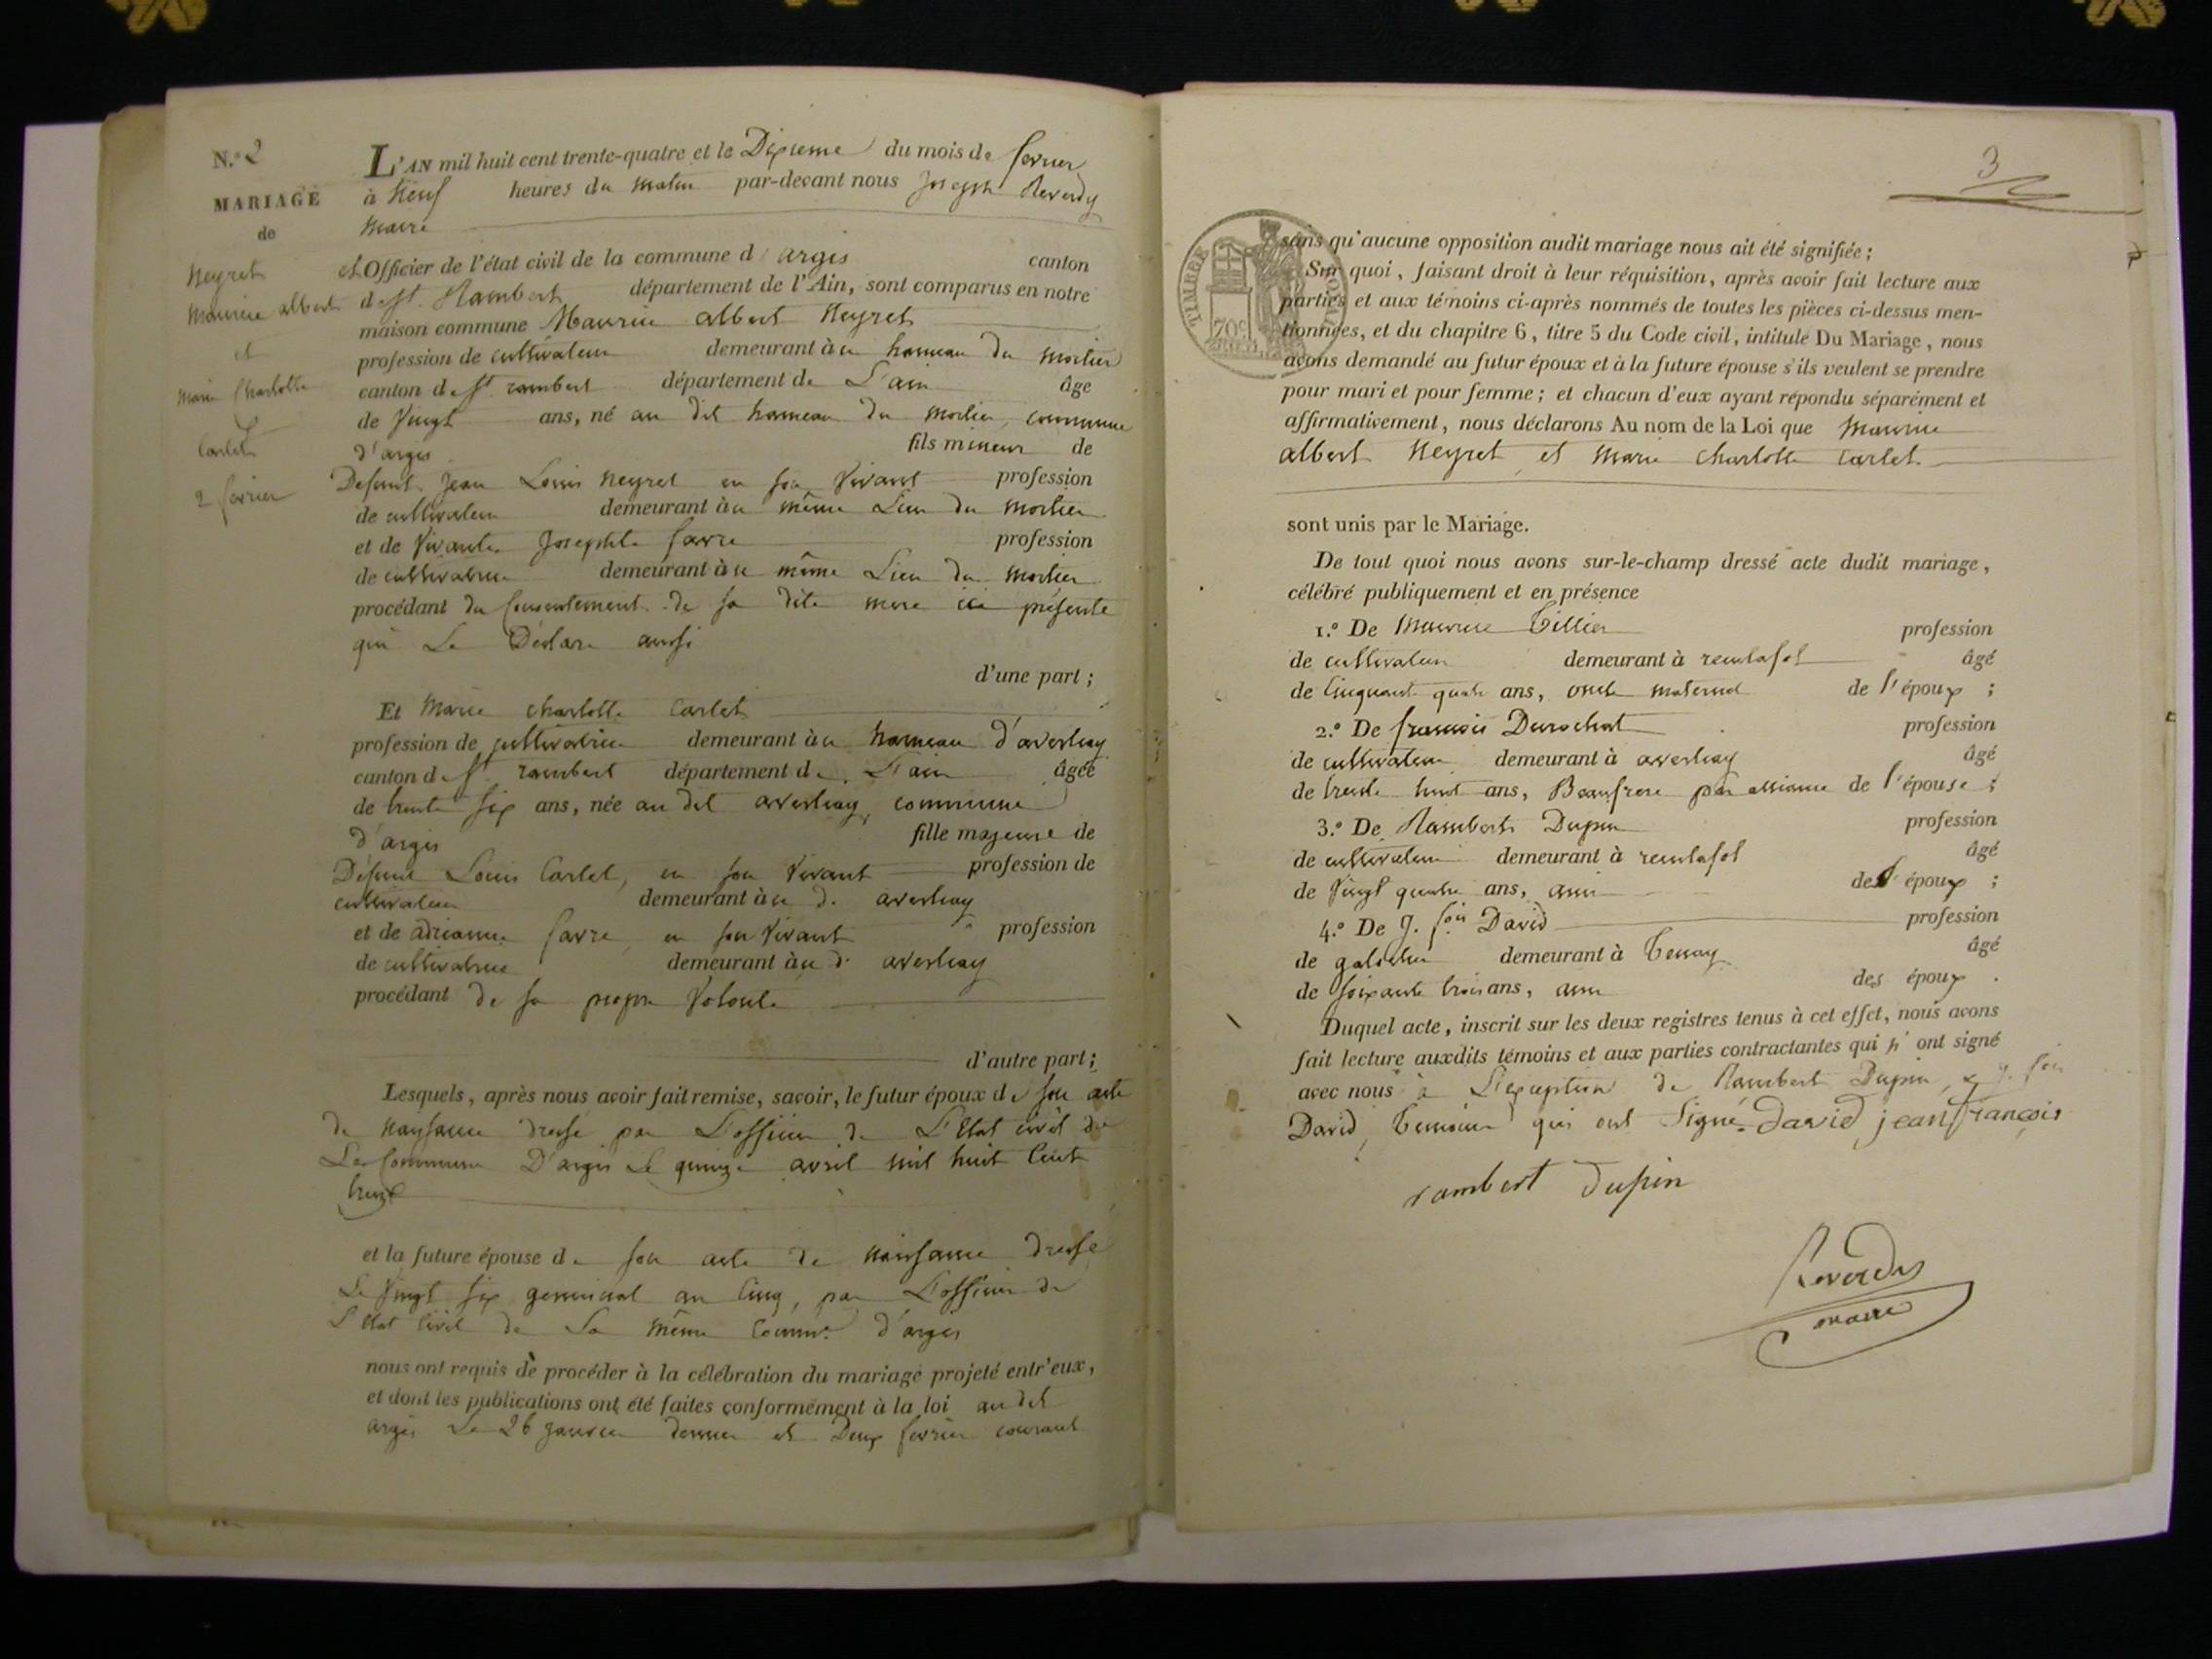 N.º 2
MARIAGE
de
Neyret
Maurice albert
et
Marie Charlotte
Carlet
2 fevrier
L'AN mil huit cent trente-quatre et le Dixieme du mois de fevrier
à Neuf heures du matin par-devant nous Joseph Reverdy
Maire
et Officier de l'état civil de la commune d'argis canton
de St. Rambert département de l'Ain, sont comparus en notre
maison commune Maurice albert Neyret
profession de cultivateur demeurant à u hameau du mortier
canton de St. rambert département de L'ain âge
de Vingt ans, né au dit hameau du mortier, commune
d'argis fils mineur de
Defunt Jean Louis Neyret en son Vivant profession
de cultivateur demeurant à u même Lieu du mortier
et de Vivante Josephte favre profession
de cultivatrice demeurant à u même Lieu du mortier
procédant du consentement de sa dite mere ici présente
qui Le Déclare aussi
d'une part ;
Et Marie charlotte Carlet
profession de cultivatrice demeurant à u hameau d'averliay
canton de St. rambert département de L'ain âgée
de trente six ans, née au dit averliay, commune
d'argis fille majeure de
Défunt Louis Carlet, en son Vivant profession de
cultivateur demeurant à u d. averliay
et de adrianne favre, en son Vivant profession
de cultivatrice demeurant à u d. averliay
procédant de sa propre Volonté
d'autre part ;
Lesquels, après nous avoir fait remise, savoir, le futur époux de son acte
de Naissance dressé par L'officier de L'Etat civil de
La Commune D'argis Le quinze avril mil huit Cent
treize
et la future épouse de son acte de Naissance dressé
Le Vingt six germinal an Cinq, par L'officier de
L'Etat Civil de La même Comm.e d'argis
nous ont requis de procéder à la célébration du mariage projeté entr'eux,
et dont les publications ont été faites conformément à la loi au dit
argis Le 26 janvier dernier et Deux fevrier courant
3
TIMBRE ROYAL
70c
sans qu'aucune opposition audit mariage nous ait été signifiée ;
Sur quoi, faisant droit à leur réquisition, après avoir fait lecture aux
parties et aux témoins ci-après nommés de toutes les pièces ci-dessus men-
tionnées, et du chapitre 6, titre 5 du Code civil, intitulé Du Mariage, nous
avons demandé au futur époux et à la future épouse s'ils veulent se prendre
pour mari et pour femme ; et chacun d'eux ayant répondu séparément et
affirmativement, nous déclarons Au nom de la Loi que Maurice
albert Neyret et Marie Charlotte Carlet
sont unis par le Mariage.
De tout quoi nous avons sur-le-champ dressé acte dudit mariage,
célébré publiquement et en présence
1.º De Maurice Tillier profession
de cultivateur demeurant à reculafol âgé
de Cinquante quatre ans, oncle maternel de l'époux ;
2.º De françois Durochat profession
de cultivateur demeurant à averliay âgé
de trente huit ans, Beaufrere par alliance de l'épouse ;
3.º De Rambert Dupin profession
de cultivateur demeurant à reculafol âgé
de Vingt quatre ans, ami de l'époux ;
4.º De J. fois David profession
de demeurant à Tenay âgé
de soixante trois ans, ami des époux.
Duquel acte, inscrit sur les deux registres tenus à cet effet, nous avons
fait lecture auxdits témoins et aux parties contractantes qui n'ont signé
avec nous à L'exception de Rambert Dupin, & J. fois
David, Temoins qui ont Signé. David jean françois
rambert dupin
Reverdy
maire